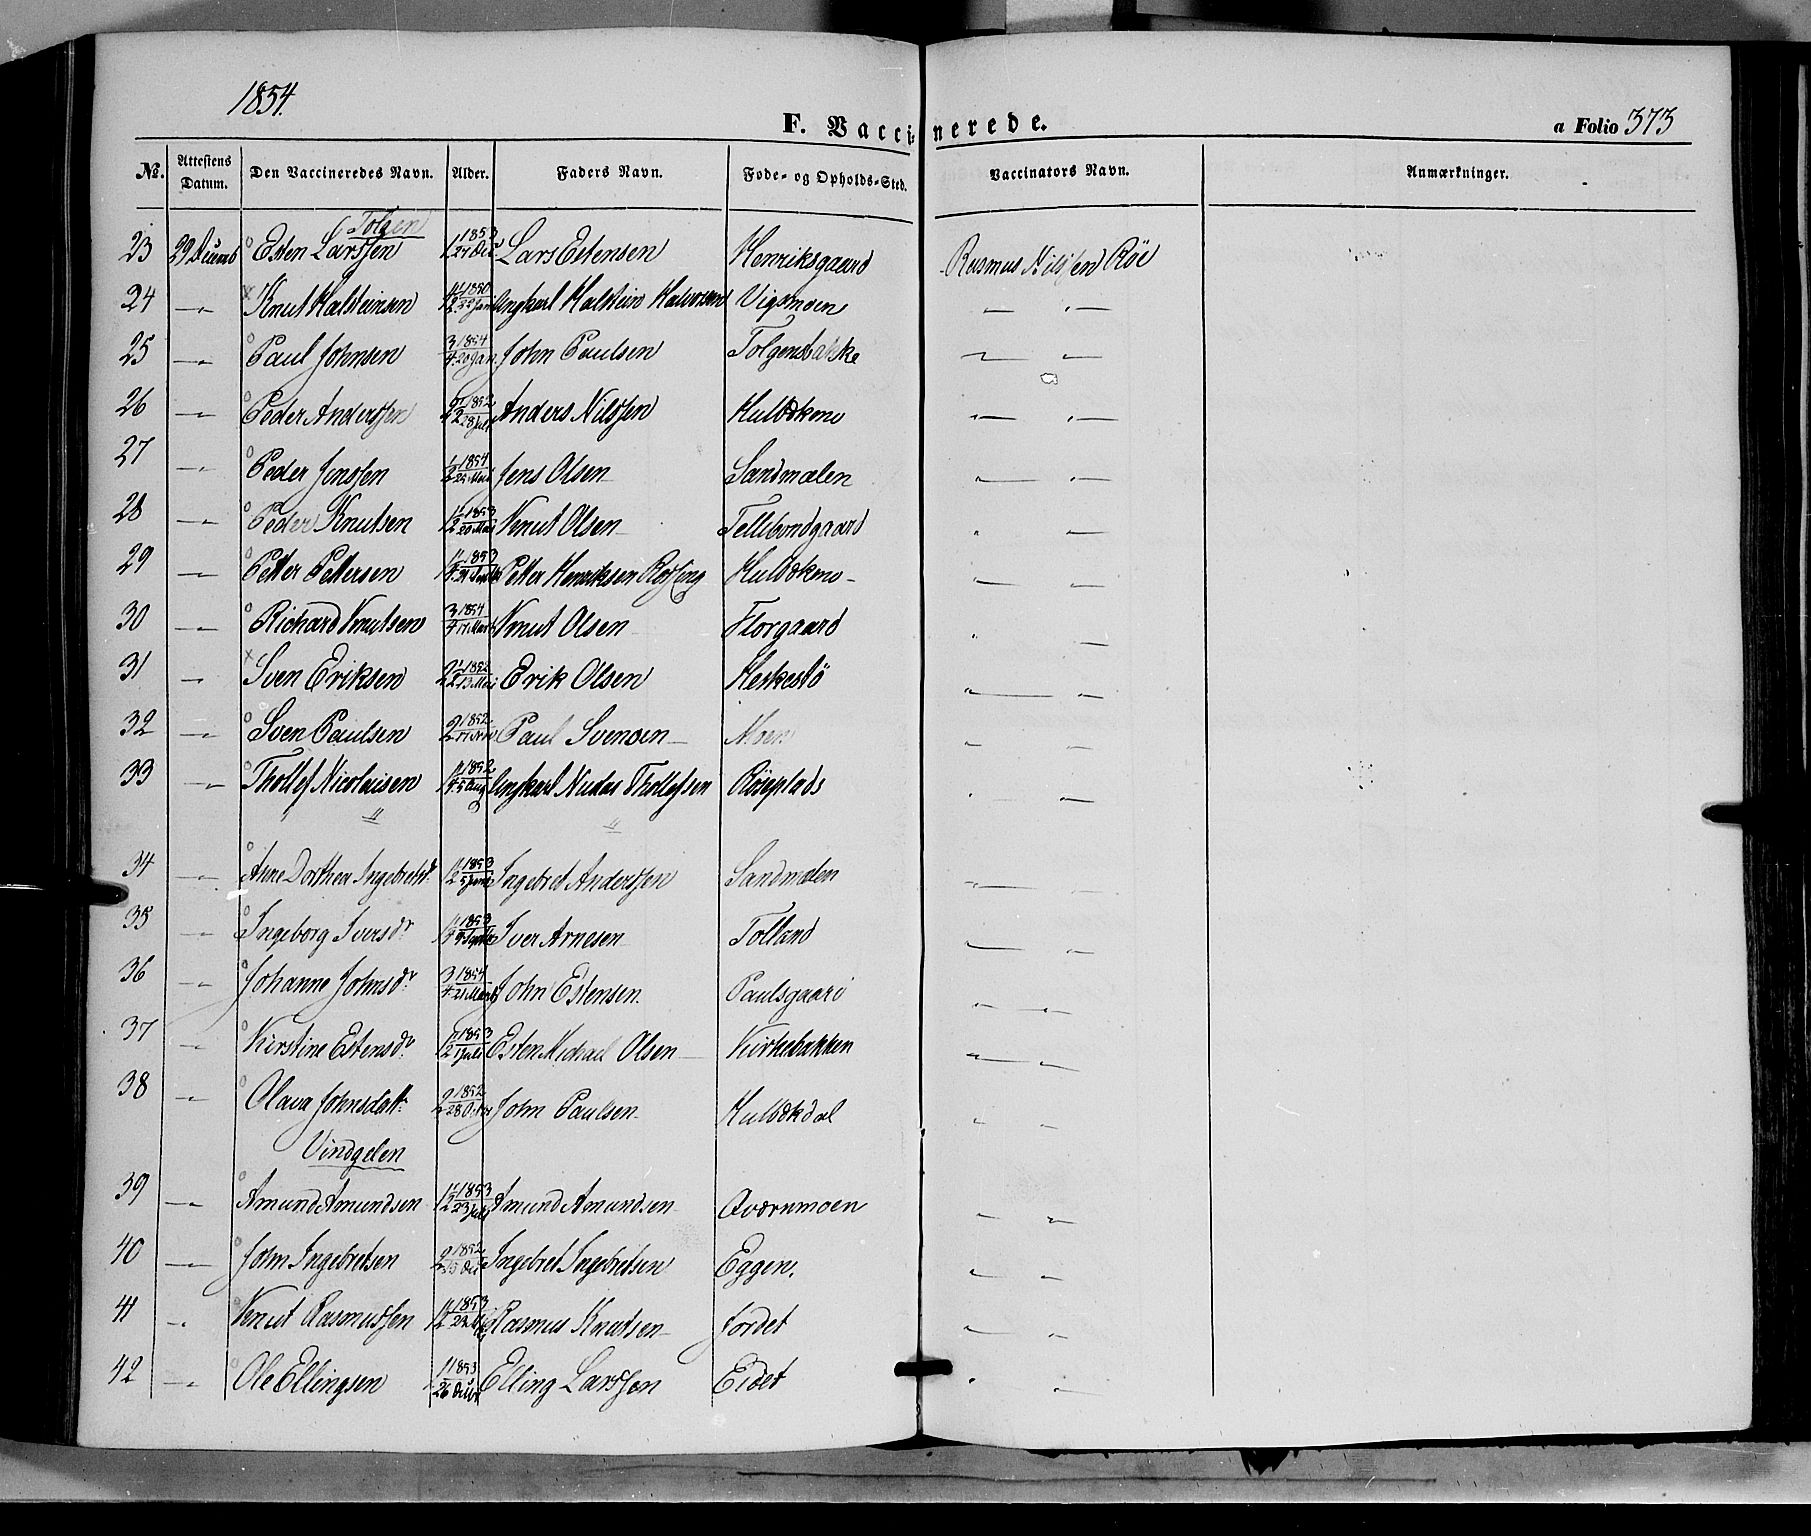 1854.
F. Vaccinerede. a Folio 373
No. Attestens Datum. Den Vaccineredes Navn. Alder. Faders Navn. Føde- og Opholds-Sted. Vaccinators Navn. Anmærkninger.
Tolgen
23 29 Decemb Esten Larssen 1 1853 27 Dec Lars Estensen Henriksgaard Rasmus Nilssen Röe
24 —„— Knut Halsteinsen 1850 22 Jan Ungkarl Halstein Halvorsen Vigsmoen —„— „—
25 —„— Paul Johnsen 3/4 1854 20 Jan. John Paulsen Tolgensbakke —„— —
26 —„— Peder Anderssen 2 1/2 1852 28 Juli Anders Nilssen Hulbækmo „— „—
27 —„— Peder Jenssen 1/2 1854 Jens Olsen Sandmælen „— „—
28 —„— Peder Knutsen 1 1/2 1853 20 Mai Knut Olsen Tellebondgaard „ —
29 —„— Petter Pettersen 1 1/4 1853 Petter Henriksen Hulbækmo „— „—
30 —„— Richard Knutsen 3/4 1854 17 Marts Knut Olsen Florgaard „ —
31 —„ Sven Eriksen 2 1/2 1852 13 Mai Erik Olsen „— „—
32 —„— Sven Paulsen 2 1852 17 Paul Svensen Moen „— „—
33 —„— Thollef Nicolaisen 1852 5 Aug Ungkarl Thollefsen Röseplads „ —
„ „
34 —„— Anne Dorthea Ingebretsd. 1 1/2 1853 5 Ingebret Anderssen Sandmælen „— „—
35 —„— Ingeborg Iversdr 1 1/4 1853 Iver Arnesen Tolland „— „—
36 —„— Johanne Johnsdr 3/4 1854 21 Marts John Estensen. Paulsgaard „— „—
37 —„— Kirstine Estensdr 1 1/2 1853 1 Juli Esten Michael Olsen Kirkebakken „— „—
38 —„— Olava Johnsdatr 2 1852 28 John Paulsen Hulbækdal „— „—
Vindgelen
39 —„— Amund Amundsen 1 1/2 1853 23 Juli Amund Amundsen Qværnmoen „— „—
40 —„— John Ingebretsen 2 1852 Dec Ingebret Ingebretsen Eggen. „— „—
41 —„ Knut Rasmussen 1 1/2 1853 Rasmus Knutsen fordet „— „—
42 —„— Ole Ellingsen 1 1853 26 Decbr Elling Larssen Eidet „ „—